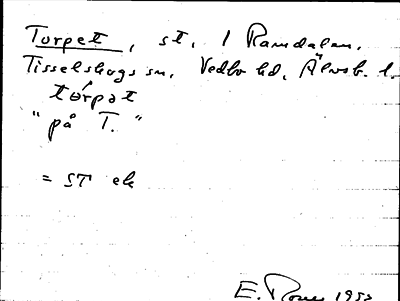 Torpet, st. i Ramdalen,
Tisselskogs sn, Vedbo hd, Älvsb. l.
tó̵rpət
"på T."
= ST ek
E. 1953